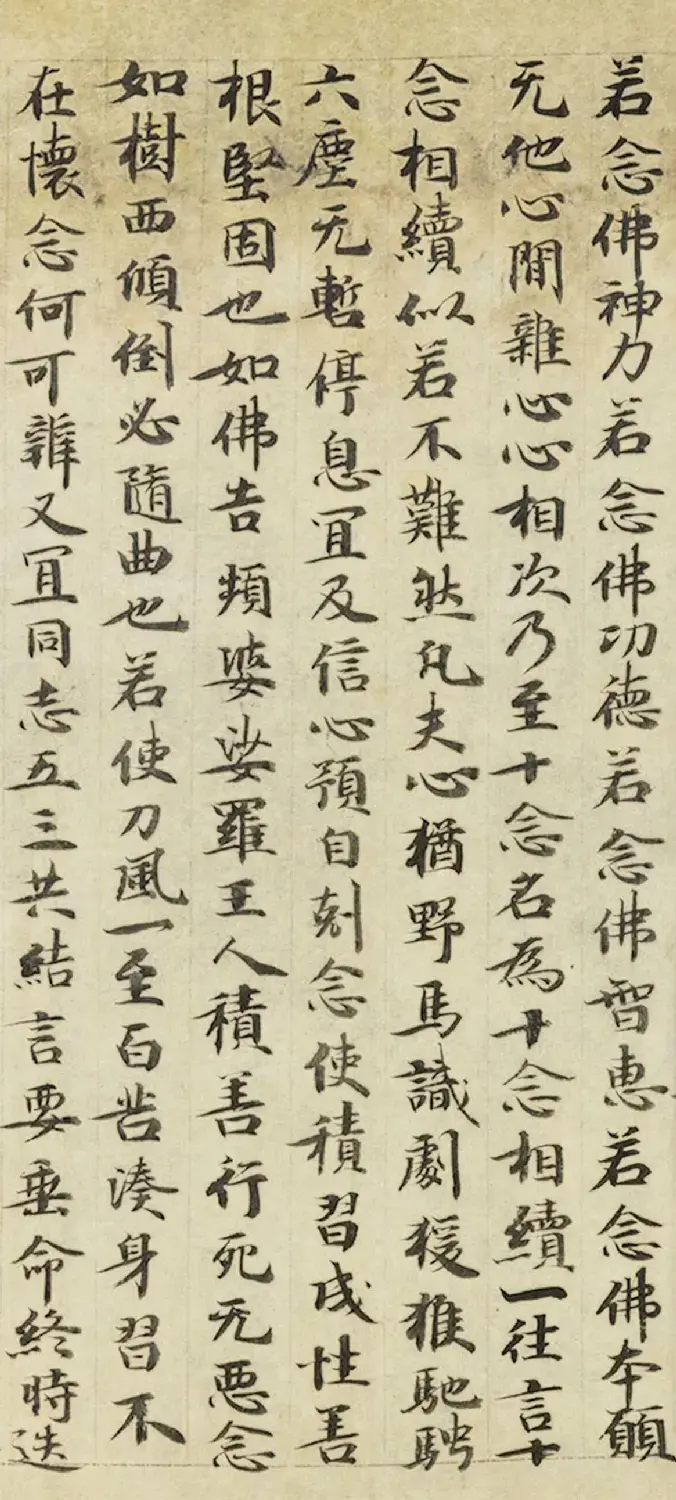 若念佛神力若念佛功德若念佛智惠若念佛本願
无他心間雜心心相次乃至十念名為十念相續一往言十
念相續似若不難然凡夫心猶野馬識劇猨猴馳騁
六塵无暫停息宜及信心預自剋念使積習成性善
根堅固也如佛告頻婆娑羅王人積善行死无惡念
如樹西傾倒必隨曲也若使刀風一至百苦湊身習不
在懷念何可辦又宜同志五三共結言要垂命終時迭